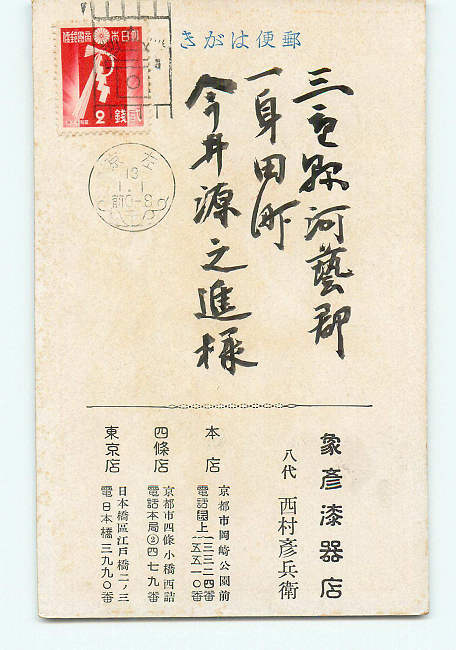 郵便はがき
大日本帝國郵便
2
貳
銭
左京
13
1.1
前0-8
三重縣河藝郡
一身田町
今井源之進様
象彦漆器店
八代 西村彦兵衛
本店
京都市岡崎公園前
電話上
一三三二四番
一五五一〇番
四條店
京都市四條小橋西詰
電話本局②四七九番
東京店
日本橋區江戸橋二ノ三
電日本橋三九九〇番